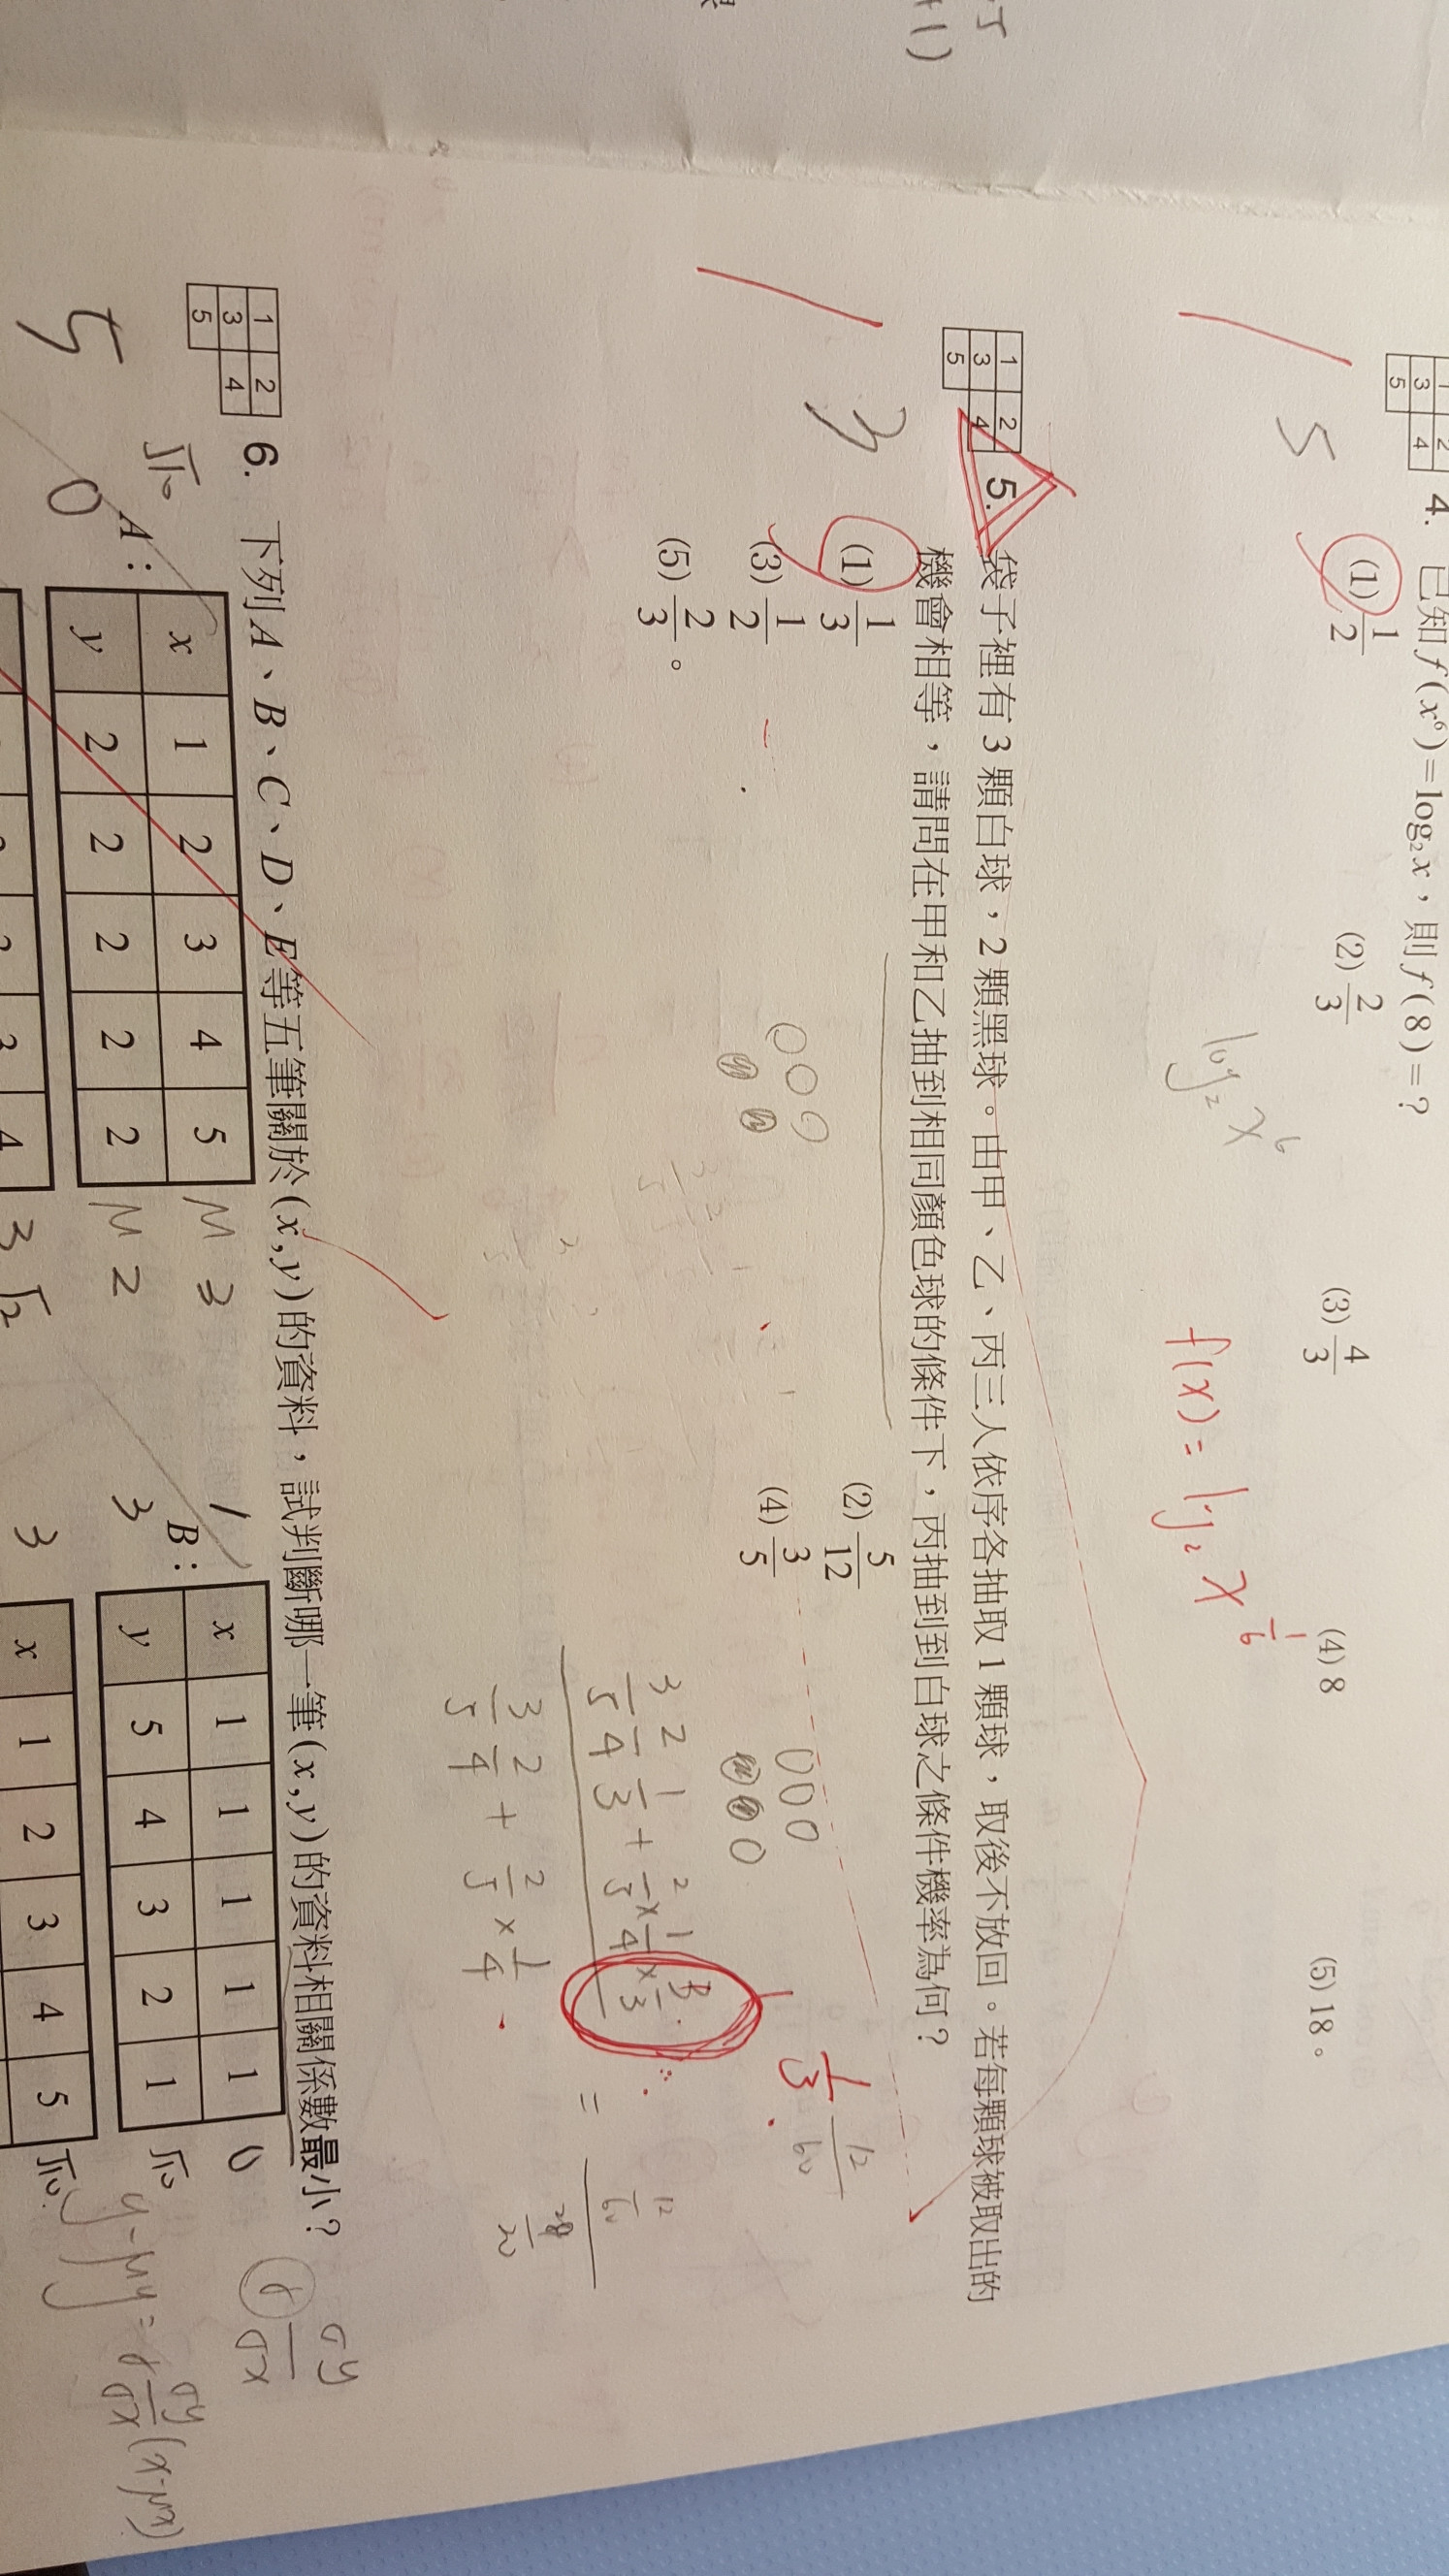 4. 已知f(x⁶)=log₂x，則f(8)=?
(1) 1/2 (2) 2/3 (3) 4/3 (4) 8 (5) 18。
5
log₂ x⁶
f(x) = log₂ x^(1/6)
1 2
3 4
5
5. 袋子裡有3顆白球，2顆黑球。由甲、乙、丙三人依序各抽取1顆球，取後不放回。若每顆球被取出的
機會相等，請問在甲和乙抽到相同顏色球的條件下，丙抽到到白球之條件機率為何?
(1) 1/3 (2) 5/12
(3) 1/2 (4) 3/5
(5) 2/3。
3
3/5 2/4 1/3 + 2/5 × 1/4 × 3/3
3/5 2/4 + 2/5 × 1/4
=
12/60
1/3
12/60
1 2
3 4
5
6. 下列A、B、C、D、E等五筆關於(x,y)的資料，試判斷哪一筆(x,y)的資料相關係數最小?
5
A:
x 1 2 3 4 5
y 2 2 2 2 2
M 3
M 2
√10
0
B:
x 1 1 1 1 1
y 5 4 3 2 1
1
3
0
√10
r σy/σx
y-μy = r σy/σx (x-μx)
x 1 2 3 4 5
√10
3
3 √2